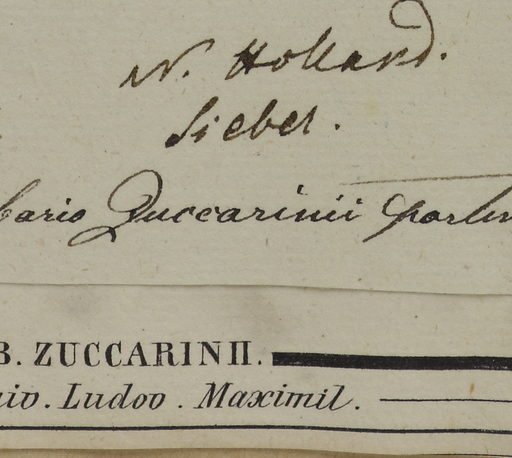 N. Holland.
Sieber.
bario Zuccarinii
B. ZUCCARINII.
niv. Ludov. Maximil.